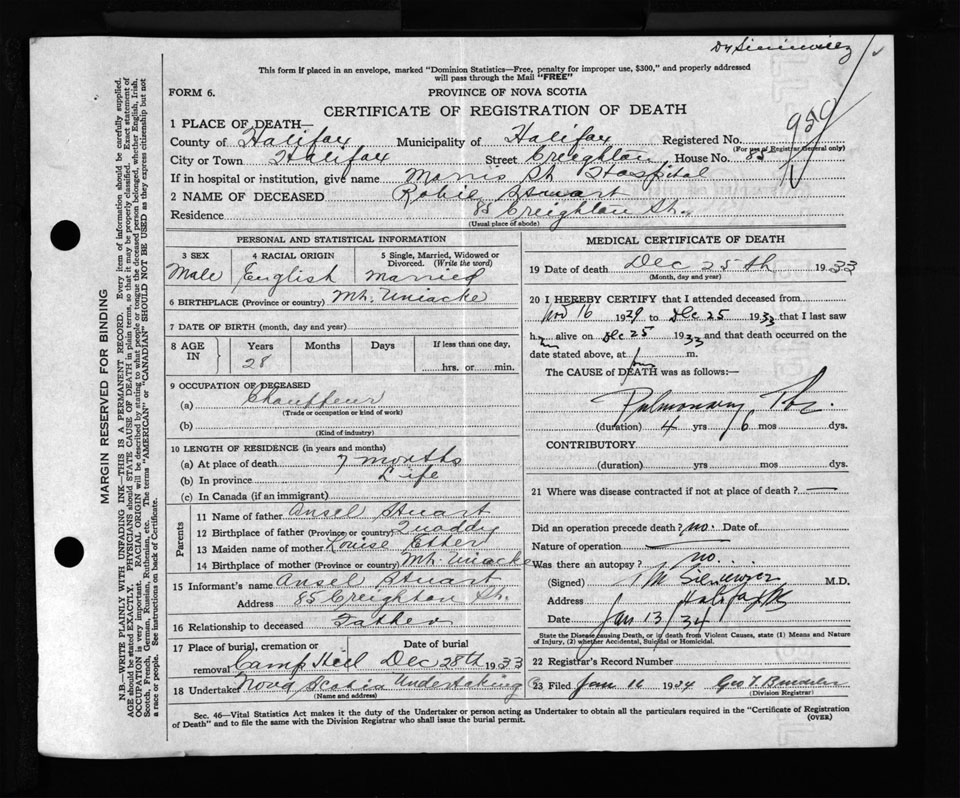 This form if placed in an envelope, marked "Dominion Statistics—Free, penalty for improper use, $300," and properly addressed
will pass through the Mail "FREE"
FORM 6. PROVINCE OF NOVA SCOTIA
CERTIFICATE OF REGISTRATION OF DEATH
1 PLACE OF DEATH—
County of Halifax Municipality of Halifax Registered No. 959
(For use of Registrar General only)
City or Town Halifax Street Creighton House No. 85
If in hospital or institution, give name Morris St Hospital
2 NAME OF DECEASED Robie Stuart
Residence 85 Creighton St.
(Usual place of abode)
MARGIN RESERVED FOR BINDING
N.B.—WRITE PLAINLY WITH UNFADING INK—THIS IS A PERMANENT RECORD. Every item of information should be carefully supplied.
AGE should be stated EXACTLY. PHYSICIANS should STATE CAUSE OF DEATH in plain terms, so that it may be properly classified. Exact statement of
OCCUPATION is very important. RACIAL ORIGIN will be described by stating to what people or tongue the deceased person belonged, whether English, Irish,
Scotch, French, German, Russian, Ruthenian, etc. The terms "AMERICAN" or "CANADIAN" SHOULD NOT BE USED as they express citizenship but not
a race or people. See instructions on back of Certificate.
PERSONAL AND STATISTICAL INFORMATION
3 SEX 4 RACIAL ORIGIN 5 Single, Married, Widowed or
Divorced. (Write the word)
Male English Married
6 BIRTHPLACE (Province or country) Mt. Uniacke
7 DATE OF BIRTH (month, day and year)
8 AGE IN Years Months Days If less than one day,
28 hrs. or min.
9 OCCUPATION OF DECEASED
(a) Chauffeur
(Trade or occupation or kind of work)
(b)
(Kind of industry)
10 LENGTH OF RESIDENCE (in years and months)
(a) At place of death 7 months
(b) In province Life
(c) In Canada (if an immigrant)
Parents
11 Name of father Ansel Stuart
12 Birthplace of father (Province or country) Quoddy
13 Maiden name of mother Louise Esther
14 Birthplace of mother (Province or country) Mt. Uniacke
15 Informant's name Ansel Stuart
Address 85 Creighton St.
16 Relationship to deceased Father
17 Place of burial, cremation or Date of burial
removal Camp Hill Dec 28th 1933
18 Undertaker Nova Scotia Undertaking Co
(Name and address)
MEDICAL CERTIFICATE OF DEATH
19 Date of death Dec 25th 1933
(Month, day and year)
20 I HEREBY CERTIFY that I attended deceased from
Nov 16 1929 to Dec 25 1933 that I last saw
him alive on Dec 25 1933 and that death occurred on the
date stated above, at m.
The CAUSE of DEATH was as follows:—
Pulmonary Tbc.
(duration) 4 yrs 6 mos dys.
CONTRIBUTORY
(duration) yrs mos dys.
21 Where was disease contracted if not at place of death? —
Did an operation precede death? no. Date of
Nature of operation —
Was there an autopsy? no.
(Signed) M.D.
Address Halifax NS
Date Jan 13/34
State the Disease causing Death, or in death from Violent Causes, state (1) Means and Nature
of Injury, (2) whether Accidental, Suicidal or Homicidal.
22 Registrar's Record Number
23 Filed Jan 16 1934 Geo T.
(Division Registrar)
Sec. 46—Vital Statistics Act makes it the duty of the Undertaker or person acting as Undertaker to obtain all the particulars required in the "Certificate of Registration
of Death" and to file the same with the Division Registrar who shall issue the burial permit. (OVER)